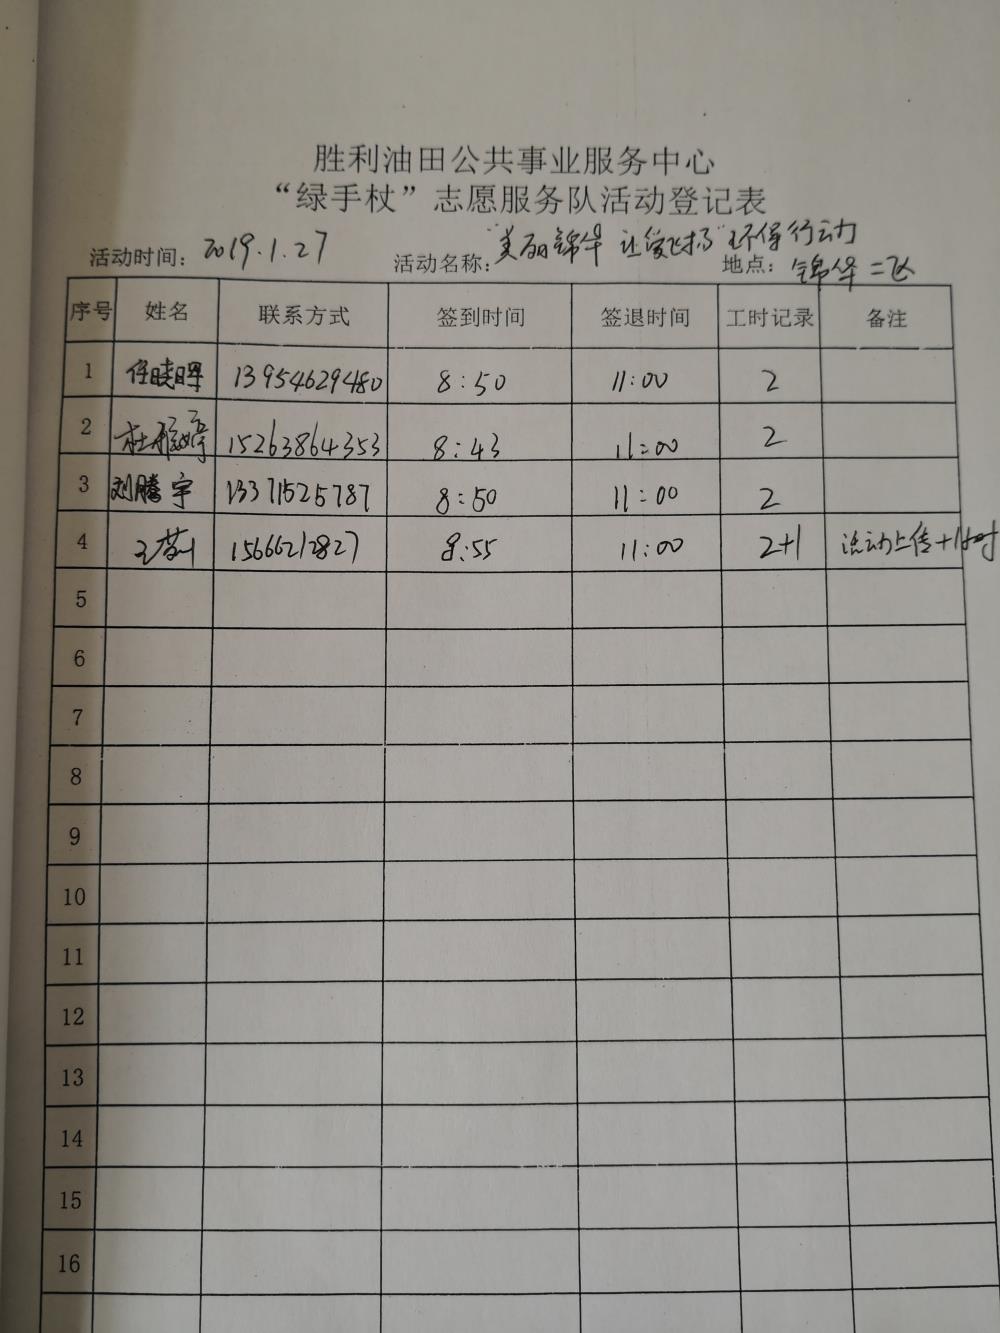 胜利油田公共事业服务中心
“绿手杖”志愿服务队活动登记表
活动时间: 2019.1.27 活动名称: “美丽锦华 让爱飞扬”环保行动 地点: 锦华二
序号 姓名 联系方式 签到时间 签退时间 工时记录 备注
1 任晓晖 13954629480 8:50 11:00 2
2 杜雅婷 15263864353 8:43 11:00 2
3 刘腾宇 13371525787 8:50 11:00 2
4 王 15666212827 8:55 11:00 2+1 活动上传+1小时
5
6
7
8
9
10
11
12
13
14
15
16